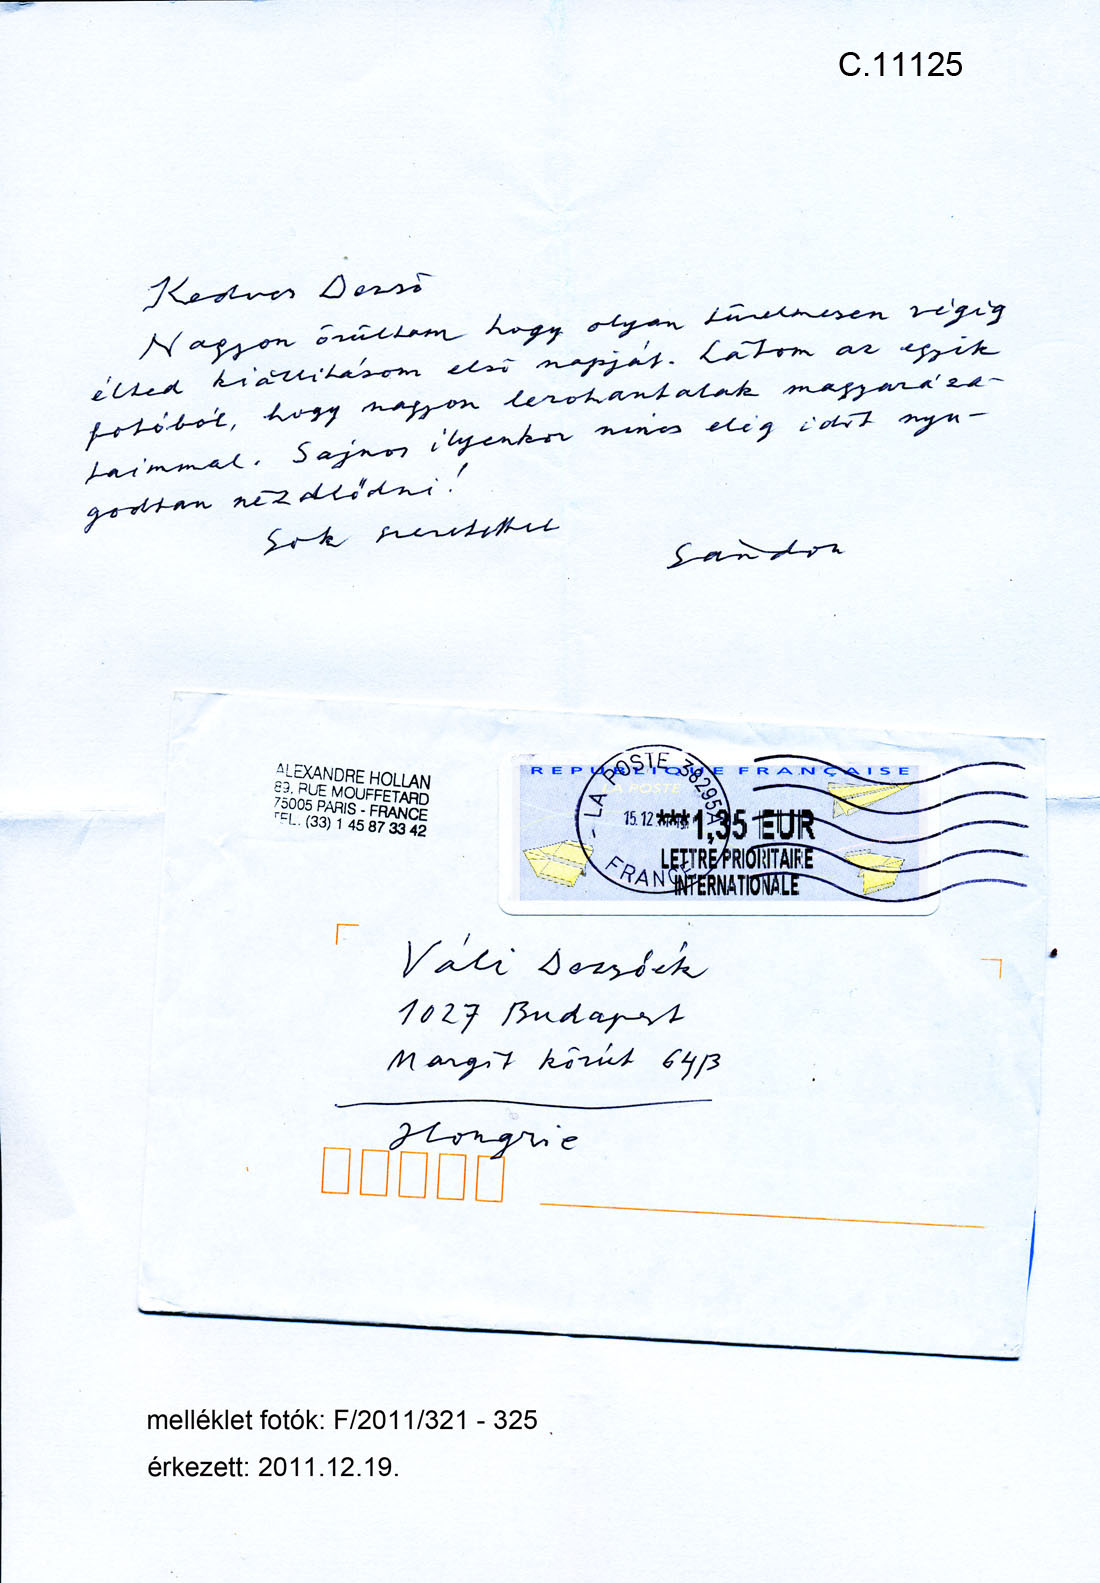 C.11125
Kedves Dezső
Nagyon örültem hogy olyan türelmesen végig
élted kiállitásom első napját. Látom az egyik
fotóból, hogy nagyon lerohantalak magyaráza-
taimmal. Sajnos ilyenkor nincs elég időt nyu-
godtan nézdlődni!
Sok szeretettel
Sándor
ALEXANDRE HOLLAN
89, RUE MOUFFETARD
75005 PARIS - FRANCE
TEL. (33) 1 45 87 33 42
REPUBLIQUE FRANÇAISE
LA POSTE
LA POSTE 38295A
15.12
FRANCE
***1,35 EUR
LETTRE PRIORITAIRE
INTERNATIONALE
Váli Dezsőék
1027 Budapest
Margit körút 64/B
Hongrie
melléklet fotók: F/2011/321 - 325
érkezett: 2011.12.19.